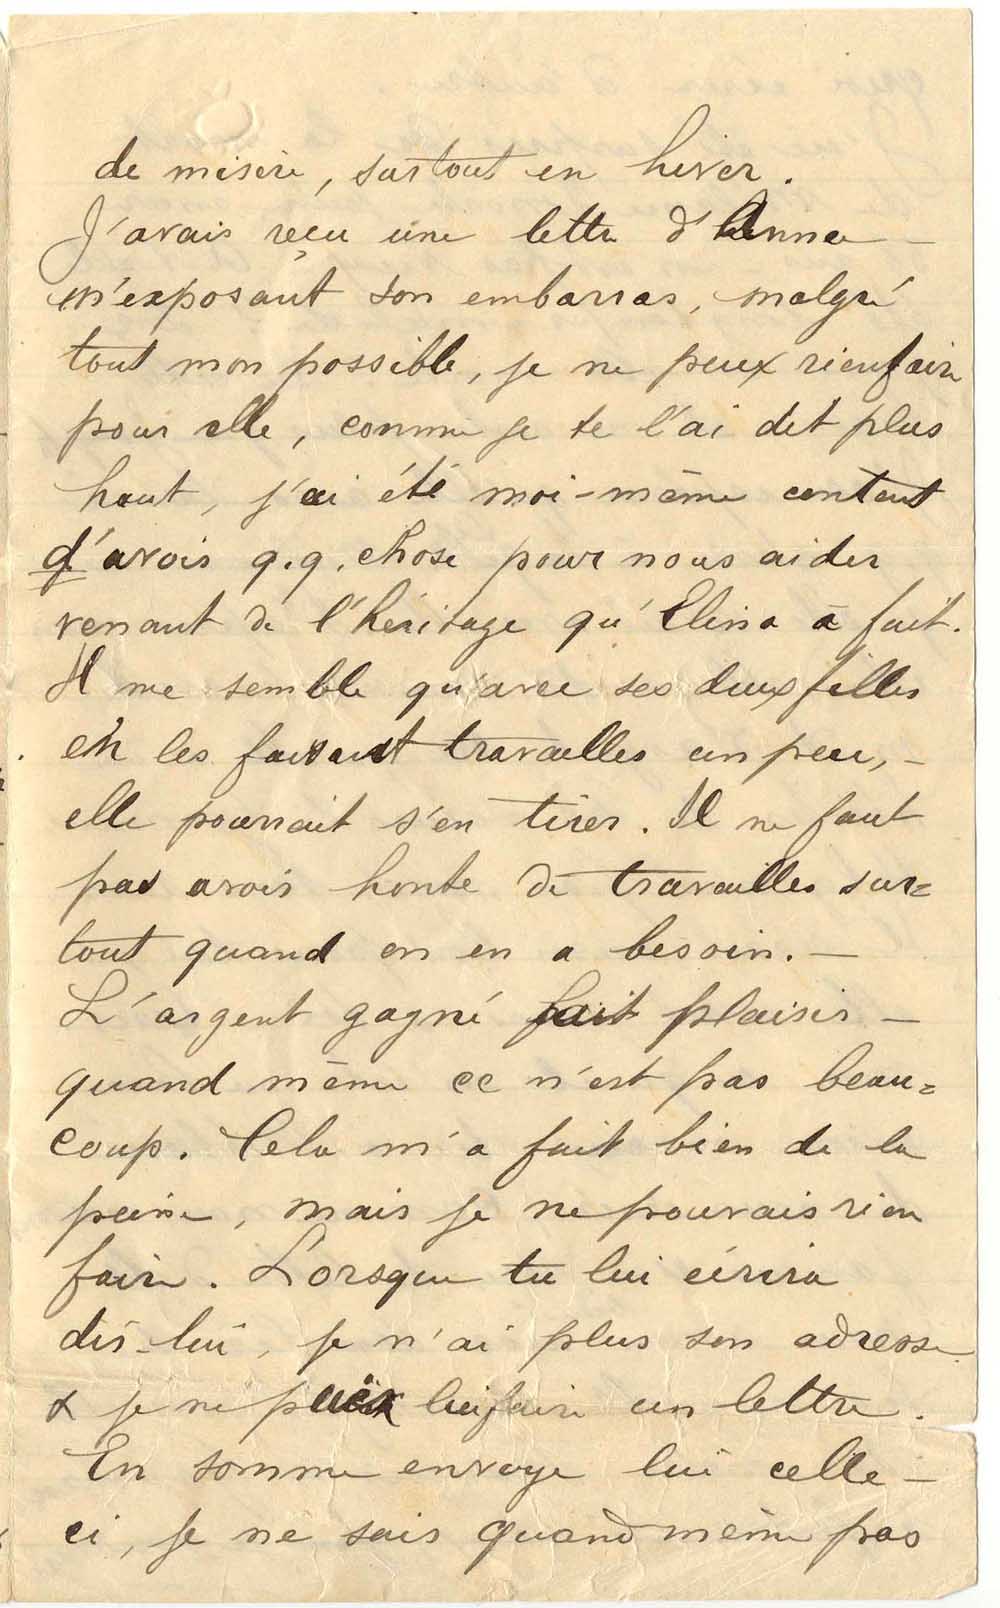 de misère, surtout en hiver.
J'avais reçu une lettre d'Anna –
m'exposant son embarras, malgré
tout mon possible, je ne peux rien faire
pour elle, comme je te l'ai dit plus
haut, j'ai été moi-même content
d'avoir q.q. chose pour nous aider
venant de l'héritage qu'Elina a fait.
Il me semble qu'avec ses deux filles
en les faisant travailler un peu, –
elle pourrait s'en tirer. Il ne faut
pas avoir honte de travailler sur=
tout quand on en a besoin. –
L'argent gagné fait plaisir –
quand même ce n'est pas beau=
coup. Cela m'a fait bien de la
peine, mais je ne pouvais rien
faire. Lorsque tu lui écrira
dis-lui, je n'ai plus son adresse
& je ne peux lui faire un lettre.
En somme envoye lui celle –
ci, je ne sais quand même pas